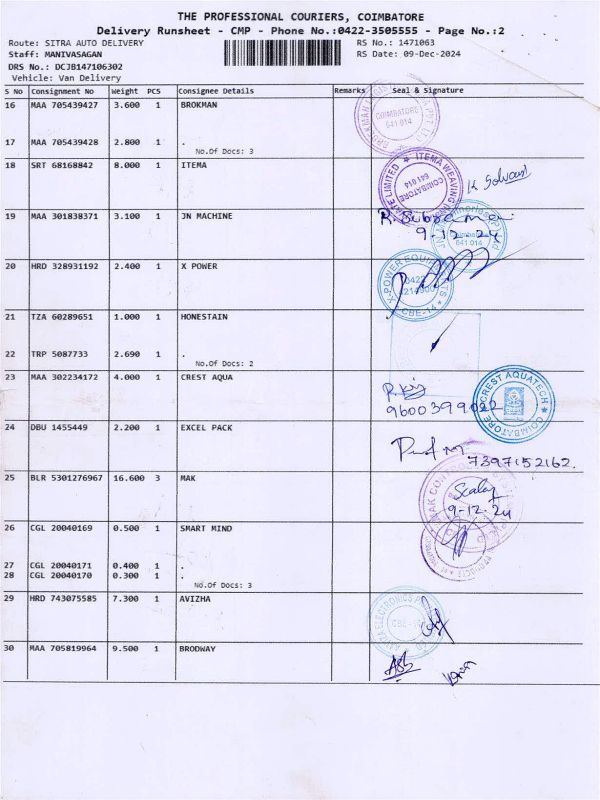 THE PROFESSIONAL COURIERS, COIMBATORE
Delivery Runsheet - CMP - Phone No.:0422-3505555 - Page No.:2
Route: SITRA AUTO DELIVERY
RS No.: 1471063
Staff: MANIVASAGAN
RS Date: 09-Dec-2024
DRS No.: DCJB147106302
Vehicle: Van Delivery
S No Consignment No Weight PCS Consignee Details Remarks Seal & Signature
16 MAA 705439427 3.600 1 BROKMAN
COIMBATORE
641 014
17 MAA 705439428 2.800 1 .
No.Of Docs: 3
18 SRT 68168842 8.000 1 ITEMA
ITEMA WEAVING
COIMBATORE
641 014
19 MAA 301838371 3.100 1 JN MACHINE
9-12-24
641 014
20 HRD 328931192 2.400 1 X POWER
X-POWER EQUIPMENTS
CBE-14
21 TZA 60289651 1.000 1 HONESTAIN
22 TRP 5087733 2.690 1 .
No.Of Docs: 2
23 MAA 302234172 4.000 1 CREST AQUA
CREST AQUATECH
COIMBATORE
24 DBU 1455449 2.200 1 EXCEL PACK
7397152162.
25 BLR 5301276967 16.600 3 MAK
9-12-24
26 CGL 20040169 0.500 1 SMART MIND
27 CGL 20040171 0.400 1 .
28 CGL 20040170 0.300 1 .
No.Of Docs: 3
29 HRD 743075585 7.300 1 AVIZHA
30 MAA 705819964 9.500 1 BRODWAY